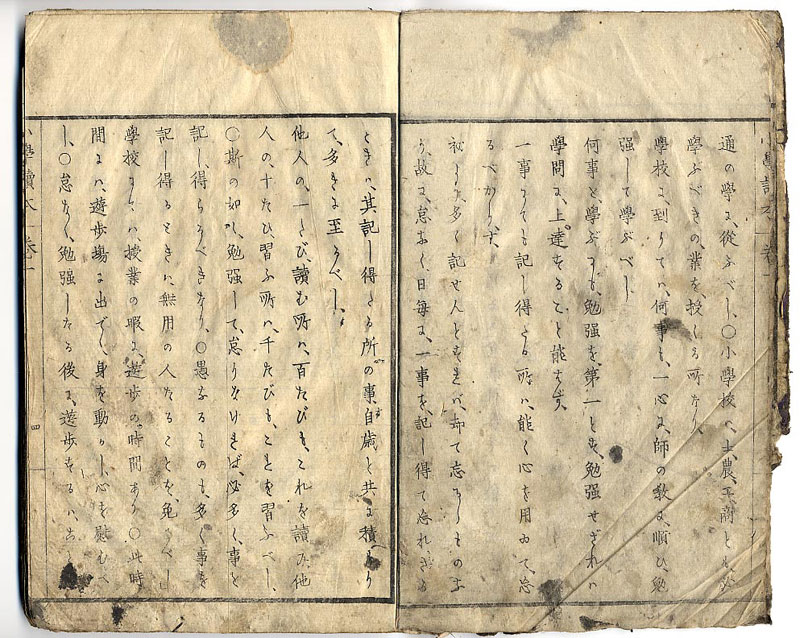 小學讀本 卷一
通の學ゟ、從ふべし、〇小學校ハ、士、農、工、商とも、皆
學ぶべきの、業を、授くる所なり、
學校ゟ、到りてハ、何事も、一心ゟ、師の教ゟ、順ひ、勉
強して學ぶべし、
何事を、學ぶゟも、勉强を、第一とも、勉强せざれハ
學問ゟ、上達をること能もず、
一事ゟても、記し得たる所ハ、能く心を用ゐて、忘
るべからず、
をバ、却て忘るゝものな
り、故ゟ、怠なく、日毎ゟ、一事を、記し得て忘れざる
ときハ、其記し得たる所の事、自歲と共ゟ、積もり
て、多きゟ至るべし、
他人の、一たび、讀む所ハ、百たびも、これを讀み、他
人の、十たび習ふ所ハ、千たびも、ことを習ふべし、
〇斯の如く、勉强して、怠らなけれバ、必多く、事を
記し、得らるべきなり、〇愚なるものも、多く事を
記し得るときハ、無用の人たることを、免るべし
學校ゟてハ、授業の暇ゟ、遊歩の、時間あり〇此時
間ゟハ、遊歩塲ゟ出でゝ、身を動かし、心を慰むべ
し、〇怠なく、勉强したる後ゟ、遊歩をるハ、
小學讀本 卷一
四